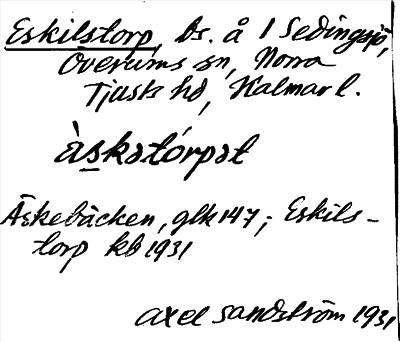 Eskilstorp, bs. å 1 Sedingsjö,
Överums sn, Norra
Tjusts hd, Kalmar l.
àskstórpət
Äskebäcken, glk 147; Eskils-
torp kb 1931
Axel Sandström 1931